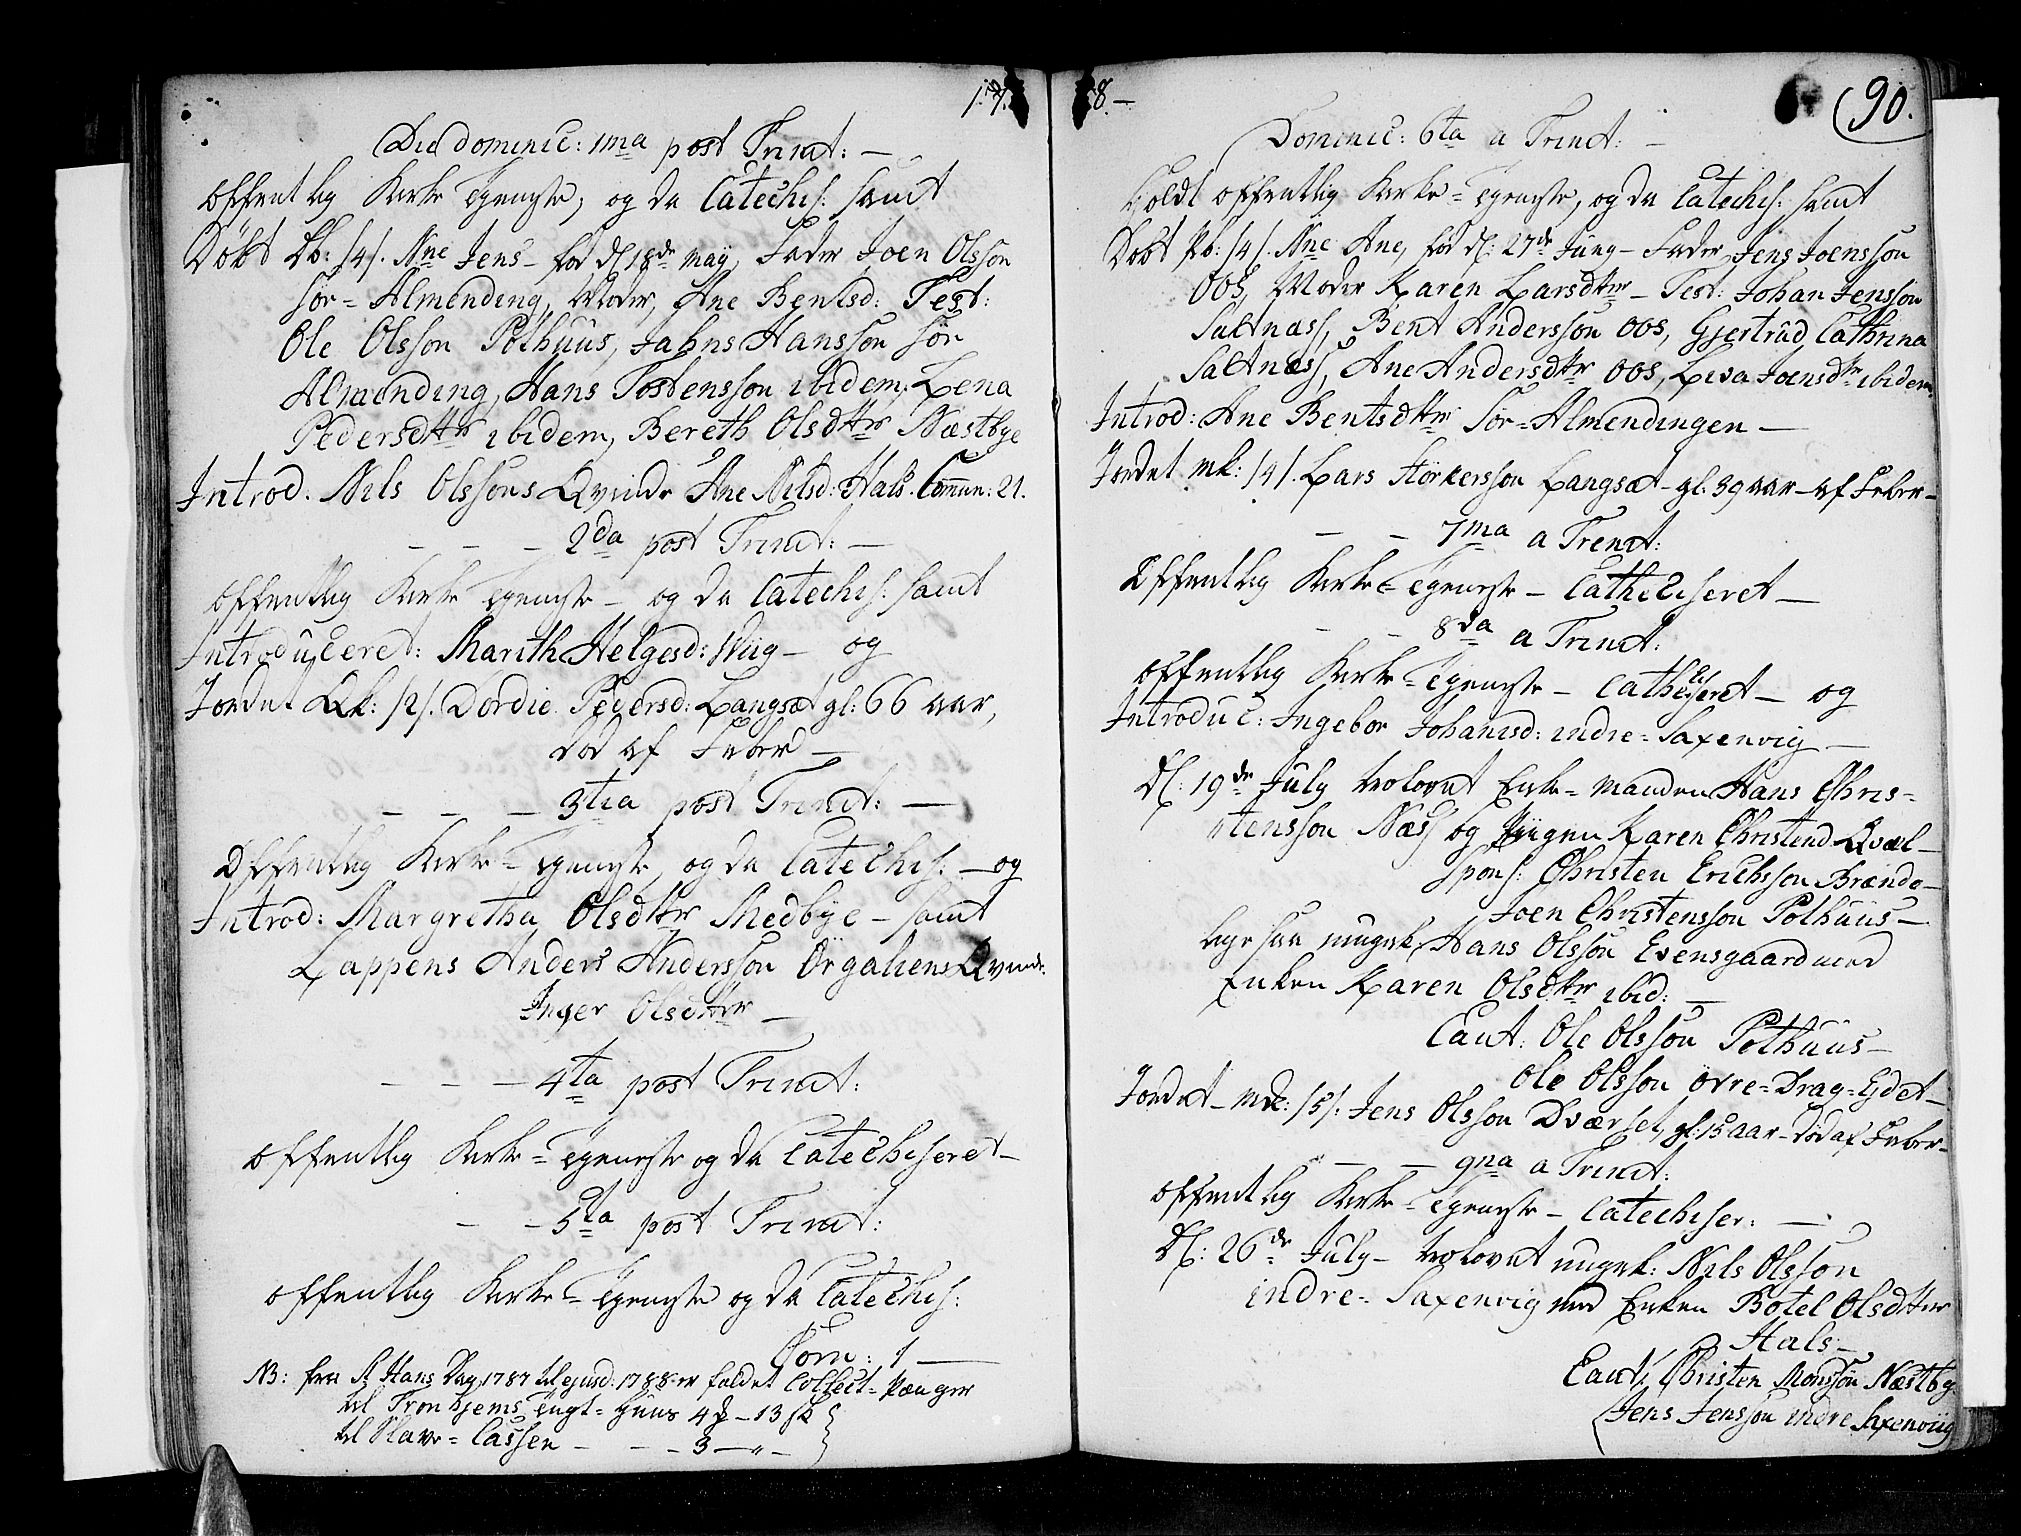 17
Die dominic: 1ma post Trinit: —
offentlig Kirke Tjeneste, og da Catechis: samt
Døbt Db: /4/. Nne Jens — fød d/ 18de may, Fader Joen Olsson
Sør = Almending, Moder, Ane Bentsd: Test:
Ole Olsson Pothuus, Jahns Hansson Sør
Almending, Hans Tostensson ibidem, Lena
Pedersdttr ibidem, Bereth Olsdttr Næstbye
Introd. Nils Olssons Qvinde Ane Nilsd: Hals. Commun: 21.
— — — 2da post Trinit: —
offentlig Kirke Tjeneste — og da Catechis: samt
Introduceret: Marith Helgesd: Wiig — og
Jordet Qk: /2/. Dordie Pedersd: Langsæt gl: 66 aar,
død af Feber —
— — — 3tia post Trinit: —
Offentlig Kirke = Tjeneste, og da Catechis: — og
Introd: Margretha Olsdttr Medbye — samt
Lappens Anders Andersson Ørgaliens Qvinde
Inger Olsdttr —
— — — 4ta post Trinit:
offentlig Kirke = Tjeneste og da Catechiseret —
— — 5ta post Trinit:
offentlig Kirke = Tjeneste og da Catechis:
Com: 1 —
NB: fra St Hans Dag 1787 til ejusd: 1788 er faldet Collect = Penger
til Tronhjems Tugt = Huus 4 — 13 sk
til Slave = Cassen — — — 3 — „ —
8 —
90.
Dominic: 6ta a Trinit: —
Holdt offentlig Kirke = Tjeneste, og da Catechis: samt
Døbt Pb: /4/. Nne Ane, fød d/: 27de Juny — Fader, Jens Joensson
Oos, Moder Karen Larsdttr — Test: Johan Jensson
Saltnæss, Bent Andersson Oos, Gjertrud Cathrina
Saltnæss, Ane Andersdttr Oos, Lisa Joensdtr ibidem
Introd: Ane Bentsdttr Sør = Almendingen —
Jordet mk: /4/. Lars Størkersson Langsæt — gl: 39 aar — af Feber —
— — 7ma a Trinit:
Offentlig Kirke = Tjeneste — Catheciseret —
— — 8da a Trinit:
offentlig Kirke = Tjeneste — Catheciseret — og
Introduc: Ingebor Johanisd: indre = Saxenvig —
D/: 19de July trolovet Enke = manden Hans Chris =
tensson Næss og Piigen Karen Christend Qvæl —
Spons: Christen Erichsson Brændo —
Joen Christensson Pothuus —
lige saa ungek: Hans Olsson Evensgaard med
Enken Karen Olsdttr ibid: —
Caut: Ole Olsson Pothuus —
Ole Olsson øvre = Drag = Ejdet —
Jordet — mk: /5/. Jens Olsson Dværset, gl: 15 aar — død af Feber —
— — 9na a Trinit:
offentlig Kirke = Tjeneste — Catechiser: —
D/: 26de July — trolovet ungek: Nils Olsson
indre = Saxenvig med Enken Botel Olsdtter
Hals —
Caut: Christen Monsson Næstby
Jens Jensson indre Saxenviig